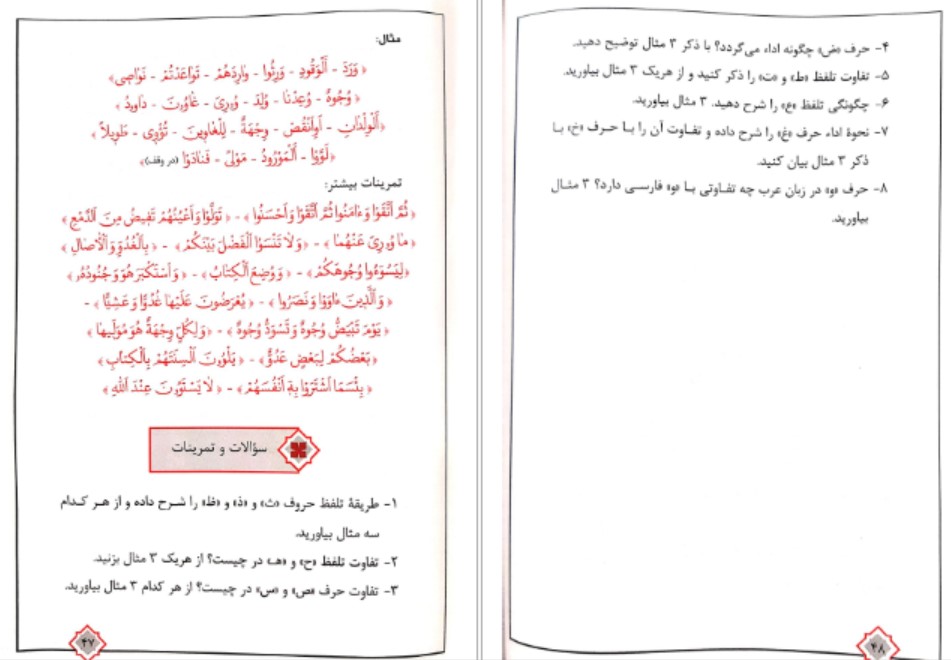 مثال:
﴿ وَرَدَ - اَلْوَقُودِ - وَرِثُوا - وارِدَهُمْ - تَواعَدْتُمْ - نَواصِی
﴿ وُجُوهٌ - وُعِدْنا - وُلِدَ - وُورِیَ - غاوُونَ - داوُدَ ﴾
﴿اَلْوِلْدانِ - اَوِانْقُصْ - وِجْهَةٌ - لِلْغاوِینَ - تُؤْوِی - طَوِیلاً ﴾
﴿ لَوَّوْا - اَلْمَوْرُودُ - مَوْلیً - فَنادَوْا (در وقف)﴾
تمرینات بیشتر:
﴿ ثُمَّ اتَّقَوْا وَءامَنُوا ثُمَّ اتَّقَوْا وَاَحْسَنُوا ﴾ - ﴿ تَوَلَّوْا وَاَعْیُنُهُمْ تَفِیضُ مِنَ الدَّمْعِ ﴾
﴿ ما وُورِیَ عَنْهُما ﴾ - ﴿ وَلا تَنْسَوُا الْفَضْلَ بَیْنَکُمْ ﴾ - ﴿ بِالْغُدُوِّ وَالْاصالِ ﴾
﴿لِیَسُوءُوا وُجُوهَکُمْ ﴾ - ﴿ وَوُضِعَ الْکِتابُ ﴾ - ﴿ وَاسْتَکْبَرَ هُوَ وَجُنُودُهُ ﴾
﴿ وَالَّذِینَ ءاوَوْا وَنَصَرُوا ﴾ - ﴿ یُعْرَضُونَ عَلَیْها غُدُوًّا وَعَشِیًّا ﴾ -
﴿ یَوْمَ تَبْیَضُّ وُجُوهٌ وَتَسْوَدُّ وُجُوهٌ ﴾ - ﴿ وَلِکُلٍّ وِجْهَةٌ هُوَ مُوَلِّیها ﴾
﴿ بَعْضُکُمْ لِبَعْضٍ عَدُوٌّ ﴾ - ﴿ یَلْوُونَ اَلْسِنَتَهُمْ بِالْکِتابِ ﴾
﴿ بِئْسَمَا اشْتَرَوْا بِهِ اَنْفُسَهُمْ ﴾ - ﴿ لا یَسْتَوُونَ عِنْدَ اللّٰهِ ﴾
سؤالات و تمرینات
۱- طریقهٔ تلفظ حروف «ث» و «ذ» و «ظ» را شرح داده و از هر کدام
سه مثال بیاورید.
۲- تفاوت تلفظ «ح» و «هـ» در چیست؟ از هریک ۳ مثال بزنید.
۳- تفاوت حرف «ص» و «س» در چیست؟ از هر کدام ۳ مثال بیاورید.
۴۷
۴- حرف «ض» چگونه اداء می‌گردد؟ با ذکر ۳ مثال توضیح دهید.
۵- تفاوت تلفظ «ط» و «ت» را ذکر کنید و از هریک ۳ مثال بیاورید.
۶- چگونگی تلفظ «ع» را شرح دهید. ۳ مثال بیاورید.
۷- نحوهٔ اداء حرف «غ» را شرح داده و تفاوت آن را با حرف «خ» با
ذکر ۳ مثال بیان کنید.
۸- حرف «و» در زبان عرب چه تفاوتی با «و» فارسی دارد؟ ۳ مثال
بیاورید.
۴۸